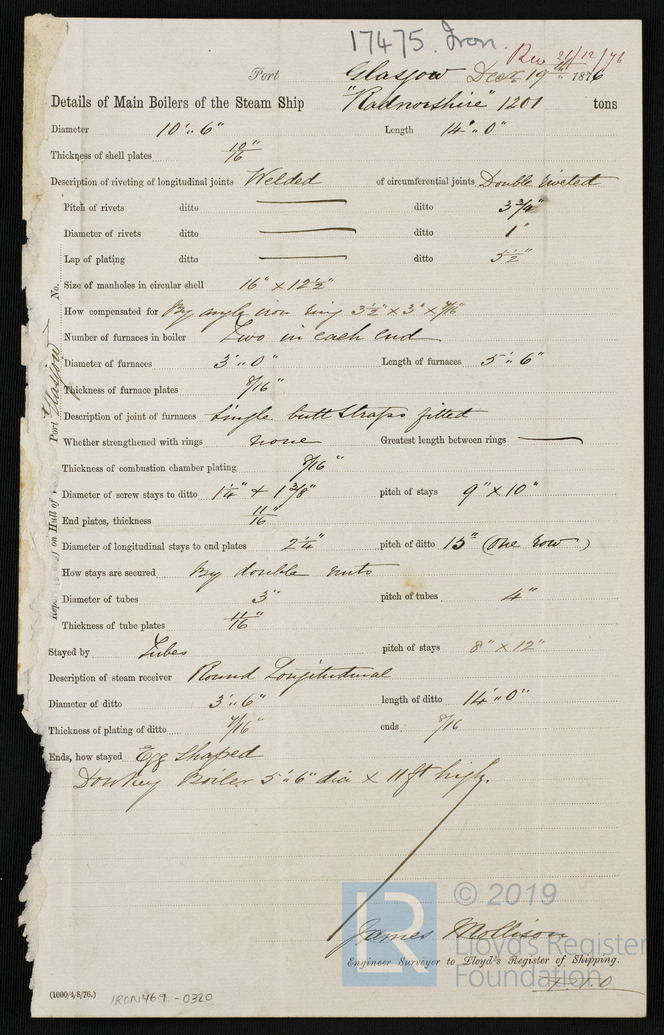 17475. Iron.
Rec 21/12/76
Port Glasgow Dec 19 1876
Details of Main Boilers of the Steam Ship "Radnorshire" 1201 tons
Diameter 10'.. 6" Length 14'.. 0"
Thickness of shell plates 10/16"
Description of riveting of longitudinal joints Welded of circumferential joints Double riveted
Pitch of rivets ditto ditto 3 3/4"
Diameter of rivets ditto ditto 1"
Lap of plating ditto ditto 5 1/2"
Size of manholes in circular shell 16" x 12 1/2"
How compensated for By angle iron ring 3 1/2" x 3" x 7/16"
Number of furnaces in boiler Two in each end
Diameter of furnaces 3'.. 0" Length of furnaces 5'.. 6"
Thickness of furnace plates 8/16"
Description of joint of furnaces Single butt straps fitted
Whether strengthened with rings none Greatest length between rings
Thickness of combustion chamber plating 8/16"
Diameter of screw stays to ditto 1 1/4" + 1 3/8" pitch of stays 9" x 10"
End plates, thickness 11/16"
Diameter of longitudinal stays to end plates 2 1/4" pitch of ditto 15" (One row)
How stays are secured By double nuts
Diameter of tubes 3" pitch of tubes 4"
Thickness of tube plates 11/16"
Stayed by Tubes pitch of stays 8" x 12"
Description of steam receiver Round Longitudinal
Diameter of ditto 3'.. 6" length of ditto 14'.. 0"
Thickness of plating of ditto 7/16" ends 8/16
Ends, how stayed Egg Shaped
Donkey Boiler 5'.. 6" dia x 11 ft high.
James Mollison
Engineer Surveyor to Lloyd's Register of Shipping.
(1000/4/8/76.)
IRON469-0320
Port Glasgow No.
on Hull of
LR © 2019
Lloyd's Register
Foundation